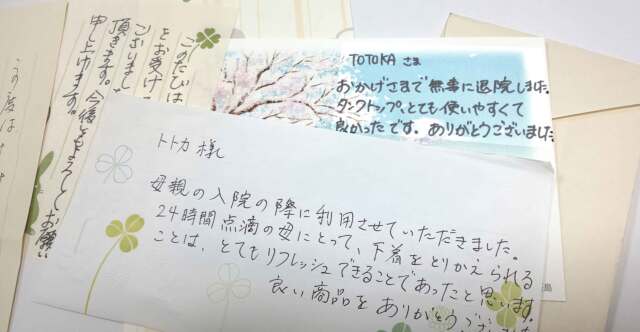 TOTOKA さま
おかげさまで無事に退院しました。
タンクトップ、とても使いやすくて
良かったです。ありがとうございました
トトカ 様
母親の入院の際に利用させていただきました。
24時間点滴の母にとって、下着をとりかえられる
ことは、とてもリフレッシュできることであったと思います。
良い商品をありがとう
このたびは
をお受け
ございまし
頂きます。今後ともよろしくお願い
申し上げます。
この度は